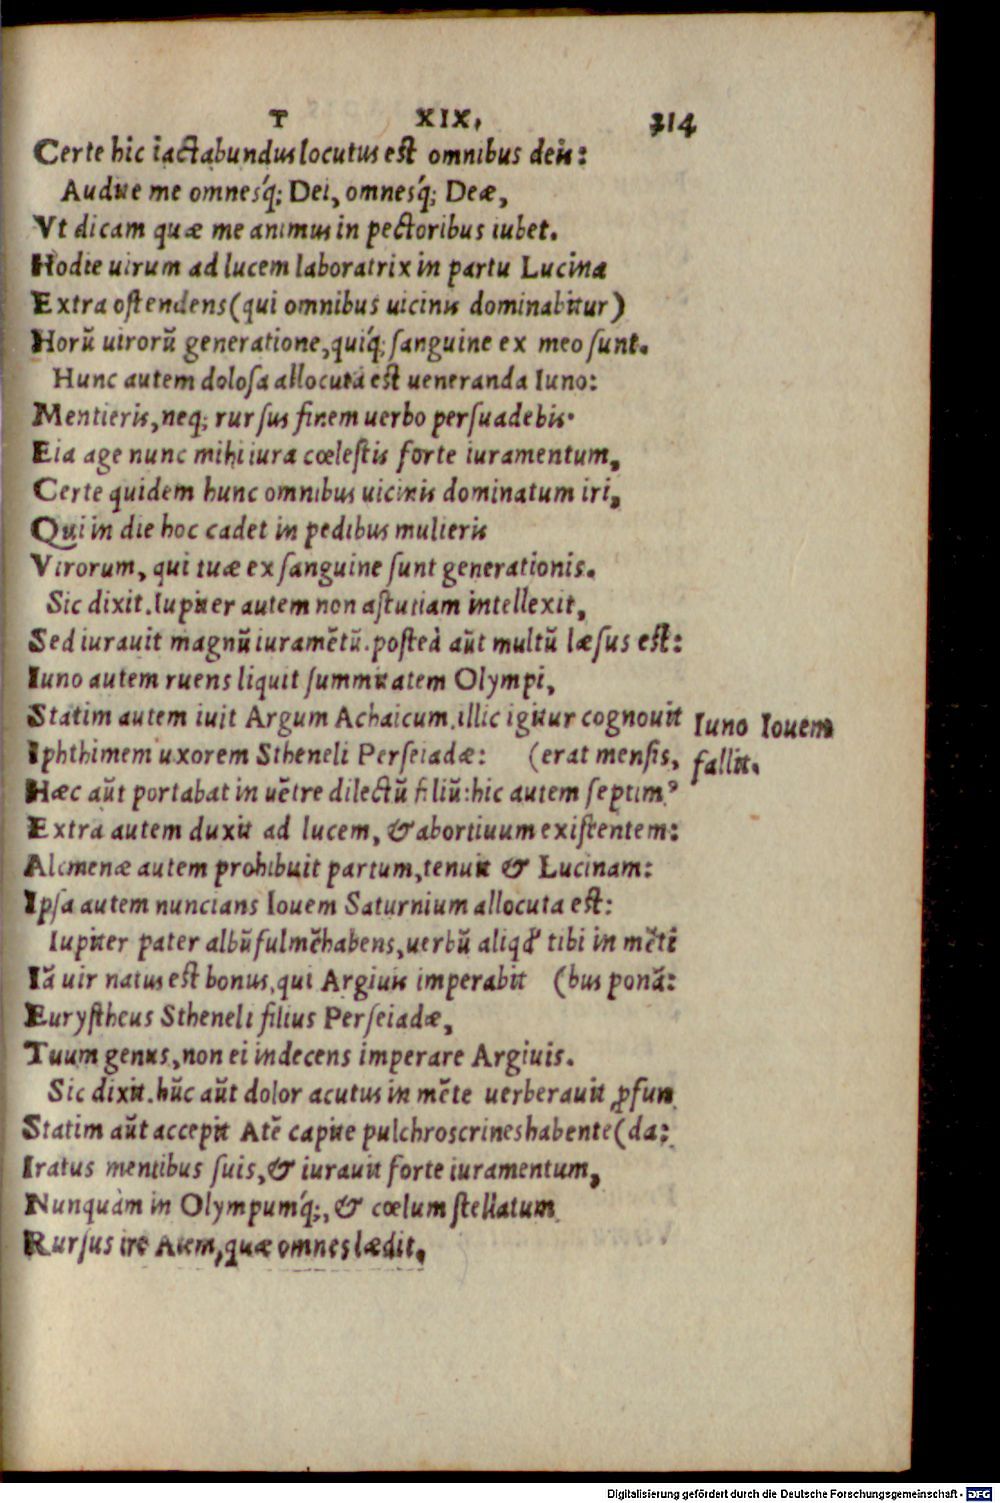 T XIX, 314
Certe hic iactabundus locutus est omnibus deis:
Audite me omnesq́; Dei, omnesq́; Deæ,
Vt dicam quæ me animus in pectoribus iubet.
Hodie uirum ad lucem laboratrix in partu Lucina
Extra ostendens (qui omnibus uicinis dominabitur)
Horũ uirorũ generatione, quiq́; sanguine ex meo sunt.
Hunc autem dolosa allocuta est ueneranda Iuno:
Mentieris, neq; rursus finem uerbo persuadebis.
Eia age nunc mihi iura cœlestis forte iuramentum,
Certe quidem hunc omnibus uicinis dominatum iri,
Qui in die hoc cadet in pedibus mulieris
Virorum, qui tuæ ex sanguine sunt generationis.
Sic dixit. Iupiter autem non astutiam intellexit,
Sed iurauit magnũ iuramẽtũ. posteà aũt multũ læsus est:
Iuno autem ruens liquit summitatem Olympi,
Statim autem iuit Argum Achaicum. illic igitur cognouit
Iuno Iouem
fallit.
Iphthimem uxorem Stheneli Perseiadæ: (erat mensis,
Hæc aũt portabat in uẽtre dilectũ filiũ: hic autem septimꝰ
Extra autem duxit ad lucem, & abortiuum existentem:
Alcmenæ autem prohibuit partum, tenuit & Lucinam:
Ipsa autem nuncians Iouem Saturnium allocuta est:
Iupiter pater albũ fulmẽ habens, uerbũ aliqđ tibi in mẽti
Iã uir natus est bonus, qui Argiuis imperabit (bus ponã:
Eurystheus Stheneli filius Perseiadæ,
Tuum genus, non ei indecens imperare Argiuis.
Sic dixit. hũc aũt dolor acutus in mẽte uerberauit ꝓfun
Statim aũt accepit Atẽ capite pulchroscrines habente (da:
Iratus mentibus suis, & iurauit forte iuramentum,
Nunquàm in Olympumq́;, & cœlum stellatum
Rursus ire Atem, quæ omnes lædit.
Digitalisierung gefördert durch die Deutsche Forschungsgemeinschaft - DFG